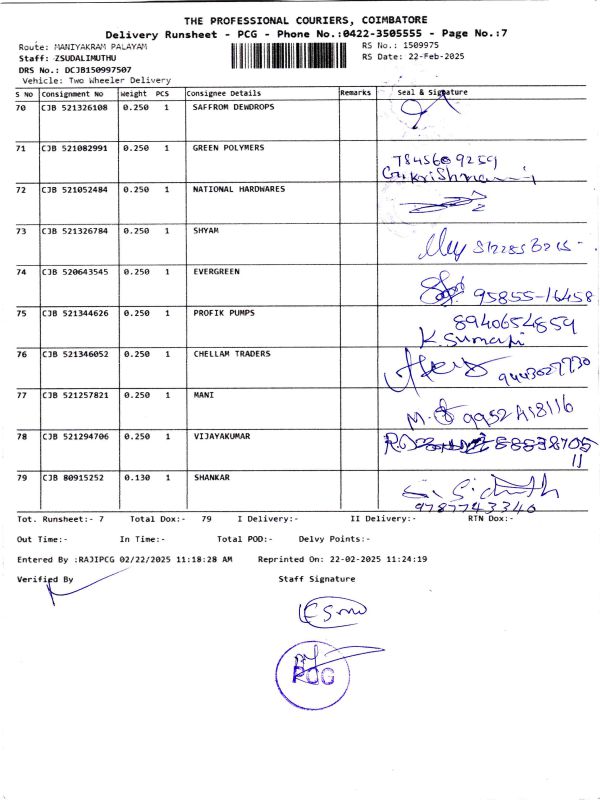 THE PROFESSIONAL COURIERS, COIMBATORE
Delivery Runsheet - PCG - Phone No.:0422-3505555 - Page No.:7
Route: MANIYAKRAM PALAYAM
RS No.: 1509975
Staff: ZSUDALIMUTHU
RS Date: 22-Feb-2025
DRS No.: DCJB150997507
Vehicle: Two Wheeler Delivery
S NO Consignment No Weight PCS Consignee Details Remarks Seal & Signature
70 CJB 521326108 0.250 1 SAFFROM DEWDROPS
71 CJB 521082991 0.250 1 GREEN POLYMERS
7845609259
72 CJB 521052484 0.250 1 NATIONAL HARDWARES
73 CJB 521326784 0.250 1 SHYAM
74 CJB 520643545 0.250 1 EVERGREEN
95855-16458
75 CJB 521344626 0.250 1 PROFIK PUMPS
8940654859
76 CJB 521346052 0.250 1 CHELLAM TRADERS
9443027730
77 CJB 521257821 0.250 1 MANI
78 CJB 521294706 0.250 1 VIJAYAKUMAR
79 CJB 80915252 0.130 1 SHANKAR
9787743340
Tot. Runsheet:- 7 Total Dox:- 79 I Delivery:- II Delivery:- RTN Dox:-
Out Time:- In Time:- Total POD:- Delvy Points:-
Entered By :RAJIPCG 02/22/2025 11:18:28 AM Reprinted On: 22-02-2025 11:24:19
Verified By Staff Signature
PCG